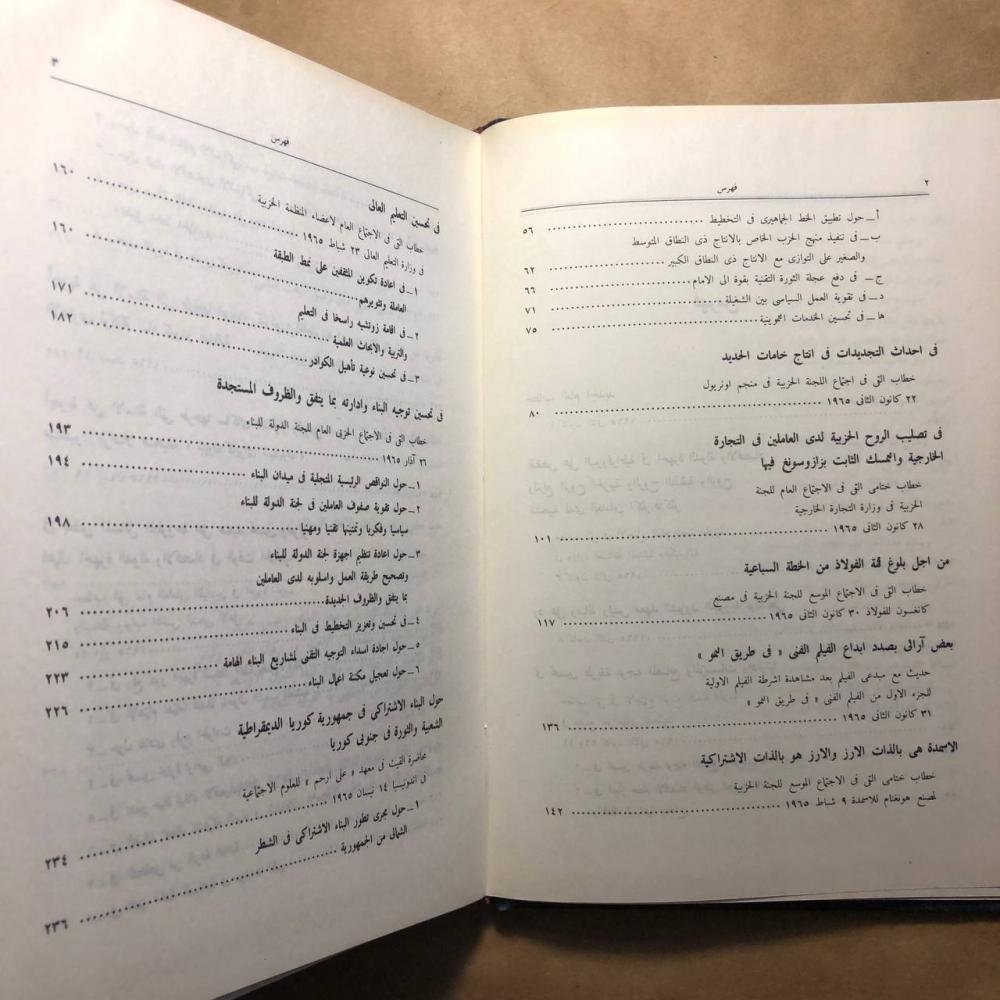 ٢
فهرس
أ ــ حول تطبيق الخط الجماهيرى فى التخطيط ........ ٥٦
ب ــ فى تنفيذ منهج الحزب الخاص بالانتاج ذى النطاق المتوسط
والصغير على التوازى مع الانتاج ذى النطاق الكبير ........ ٦٢
ج ــ فى دفع عجلة الثورة التقنية بقوة الى الامام ........ ٦٦
د ــ فى تقوية العمل السياسى بين الشغيلة ........ ٧١
ها ــ فى تحسين الخدمات التموينية ........ ٧٥
فى احداث التجديدات فى انتاج خامات الحديد
خطاب القى فى اجتماع اللجنة الحزبية فى منجم اونريول
٢٢ كانون الثانى ١٩٦٥ ........ ٨٠
فى تصليب الروح الحزبية لدى العاملين فى التجارة
الخارجية والتمسك الثابت بزازوسونغ فيها
خطاب ختامى القى فى الاجتماع العام للجنة
الحزبية فى وزارة التجارة الخارجية
٢٨ كانون الثانى ١٩٦٥ ........ ١٠١
من اجل بلوغ قمة الفولاذ من الخطة السباعية
خطاب القى فى الاجتماع الموسع للجنة الحزبية فى مصنع
كانغسون للفولاذ ٣٠ كانون الثانى ١٩٦٥ ........ ١١٧
بعض آرائى بصدد ابداع الفيلم الفنى « فى طريق النمو »
حديث مع مبدعى الفيلم بعد مشاهدة اشرطة الفيلم الاولية
للجزء الاول من الفيلم الفنى « فى طريق النمو »
٣١ كانون الثانى ١٩٦٥ ........ ١٣٦
الاسمدة هى بالذات الارز والارز هو بالذات الاشتراكية
خطاب ختامى القى فى الاجتماع الموسع للجنة الحزبية
لمصنع هونغنام للاسمدة ٩ شباط ١٩٦٥ ........ ١٤٢
٣
فهرس
فى تحسين التعليم العالى
خطاب القى فى الاجتماع العام لاعضاء المنظمة الحزبية
فى وزارة التعليم العالى ٢٣ شباط ١٩٦٥ ........ ١٦٠
١ ــ فى اعادة تكوين المثقفين على نمط الطبقة
العاملة وتثويرهم ........ ١٦٠
٢ ــ فى اقامة زوتشيه راسخا فى التعليم
والتربية والابحاث العلمية ........ ١٧١
٣ ــ فى تحسين نوعية تأهيل الكوادر ........ ١٨٢
فى تحسين توجيه البناء وادارته بما يتفق والظروف المستجدة
خطاب القى فى الاجتماع الحزبى العام للجنة الدولة للبناء
٢٦ آذار ١٩٦٥ ........ ١٩٣
١ ــ حول النواقص الرئيسية المتجلية فى ميدان البناء ........ ١٩٤
٢ ــ حول تقوية صفوف العاملين فى لجنة الدولة للبناء
سياسيا وفكريا وتمتينها تقنيا ومهنيا ........ ١٩٨
٣ ــ حول اعادة تنظيم اجهزة لجنة الدولة للبناء
وتصحيح طريقة العمل واسلوبه لدى العاملين
بما يتفق والظروف الجديدة ........ ٢٠٦
٤ ــ فى تحسين وتعزيز التخطيط فى البناء ........ ٢١٥
٥ ــ حول اجادة اسداء التوجيه التقنى لمشاريع البناء الهامة ........ ٢٢٣
٦ ــ حول تعجيل مكننة اعمال البناء ........ ٢٢٦
حول البناء الاشتراكى فى جمهورية كوريا الديمقراطية
الشعبية والثورة فى جنوبى كوريا
محاضرة القيت فى معهد « على ارحم » للعلوم الاجتماعية
فى اندونيسيا ١٤ نيسان ١٩٦٥ ........ ٢٣٤
١ ــ حول مجرى تطور البناء الاشتراكى فى الشطر
الشمالى من الجمهورية ........ ٢٣٦